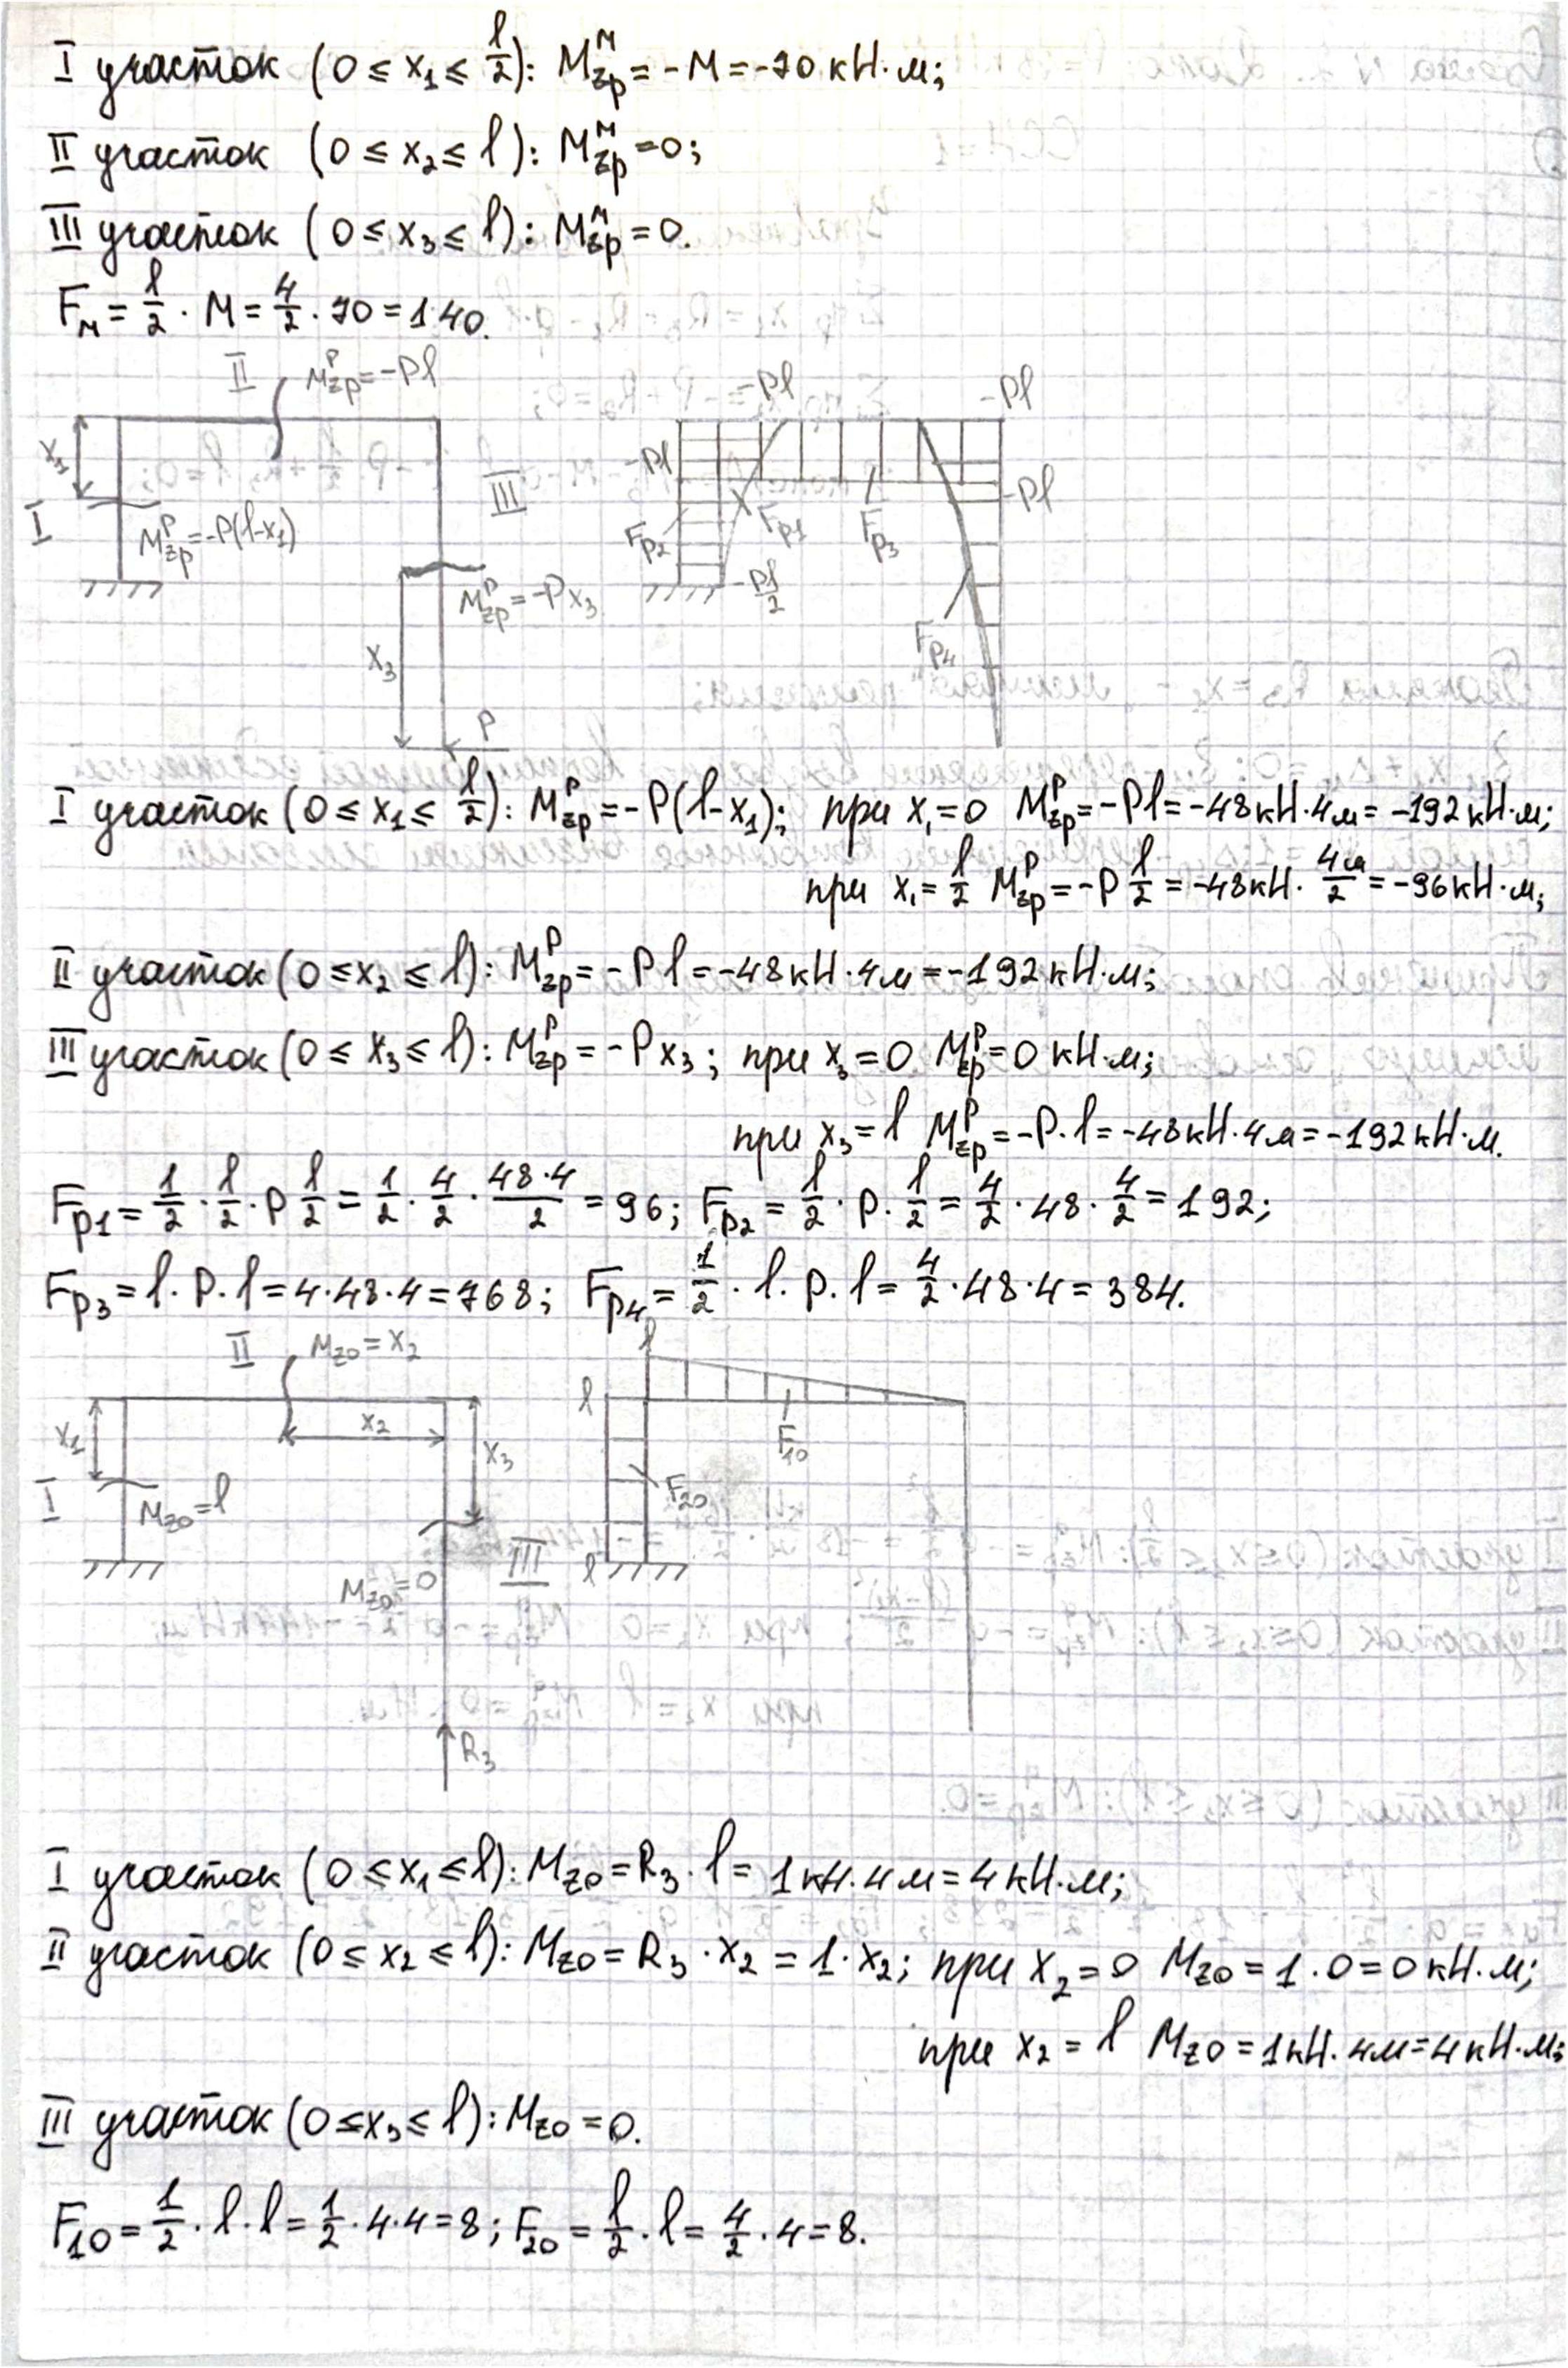 I участок (0 ≤ x₁ ≤ l/2): Mᴹzp = -M = -70 кН·м;
II участок (0 ≤ x₂ ≤ l): Mᴹzp = 0;
III участок (0 ≤ x₃ ≤ l): Mᴹzp = 0.
Fм = l/2 · M = 4/2 · 70 = 140.
II Mᴾzp = -Pl
-Pl -Pl
x₁ III -Pl -Pl
I Mᴾzp = -P(l-x₁) Fp2 Fp1 Fp3
Mᴾzp = -Px₃ -Pl/2
x₃ Fp4
P
I участок (0 ≤ x₁ ≤ l/2): Mᴾzp = -P(l-x₁); при x₁=0 Mᴾzp = -Pl = -48кН·4м = -192кН·м;
при x₁ = l/2 Mᴾzp = -P l/2 = -48кН · 4м/2 = -96кН·м;
II участок (0 ≤ x₂ ≤ l): Mᴾzp = -Pl = -48кН·4м = -192кН·м;
III участок (0 ≤ x₃ ≤ l): Mᴾzp = -Px₃; при x₃=0 Mᴾzp = 0 кН·м;
при x₃ = l Mᴾzp = -P·l = -48кН·4м = -192кН·м.
Fp1 = 1/2 · l/2 · P l/2 = 1/2 · 4/2 · 48·4/2 = 96; Fp2 = l/2 · P · l/2 = 4/2 · 48 · 4/2 = 192;
Fp3 = l·P·l = 4·48·4 = 768; Fp4 = 1/2 · l·P·l = 4/2 · 48·4 = 384.
II Mz0 = x₂ l
x₁ x₂ x₃ l F10
I Mz0 = l F20
Mz0 = 0 III l
R₃
I участок (0 ≤ x₁ ≤ l): Mz0 = R₃·l = 1кН·4м = 4кН·м;
II участок (0 ≤ x₂ ≤ l): Mz0 = R₃·x₂ = 1·x₂; при x₂=0 Mz0 = 1·0 = 0кН·м;
при x₂ = l Mz0 = 1кН·4м = 4кН·м;
III участок (0 ≤ x₃ ≤ l): Mz0 = 0.
F10 = 1/2 · l·l = 1/2 · 4·4 = 8; F20 = l/2 · l = 4/2 · 4 = 8.